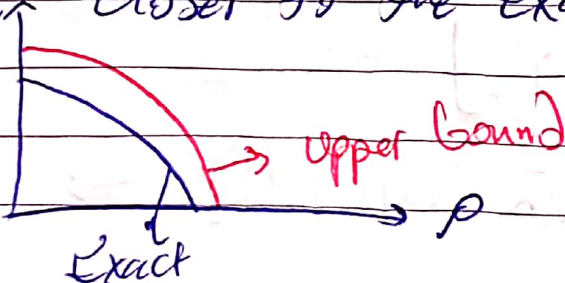 closer to the Exa
Upper bound
ρ
Exact